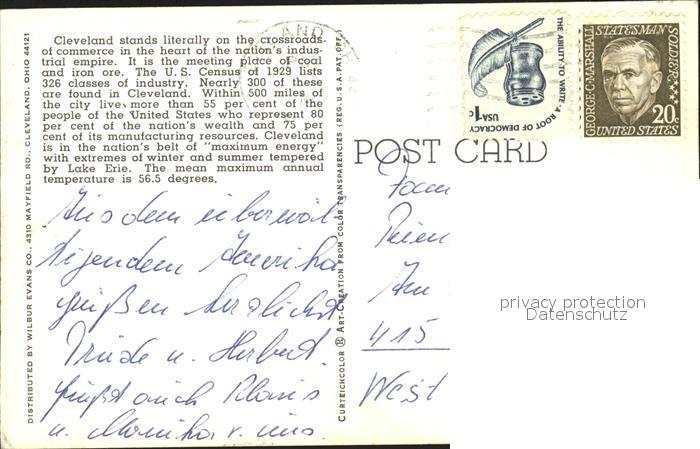 Cleveland stands literally on the crossroads
of commerce in the heart of the nation's indus-
trial empire. It is the meeting place of coal
and iron ore. The U.S. Census of 1929 lists
326 classes of industry. Nearly 300 of these
are found in Cleveland. Within 500 miles of
the city live more than 55 per cent of the
people of the United States who represent 80
per cent of the nation's wealth and 75 per
cent of its manufacturing resources. Cleveland
is in the nation's belt of "maximum energy"
with extremes of winter and summer tempered
by Lake Erie. The mean maximum annual
temperature is 56.5 degrees.
Aus dem überwäl-
tigendem Amerika
grüßen herzlichst
Trude u. Herbert.
Grüßt auch Klaus
u. Monika v. uns.
DISTRIBUTED BY WILBUR EVANS CO., 4310 MAYFIELD RD., CLEVELAND, OHIO 44121
CURTEICHCOLOR ® ART-CREATION FROM COLOR TRANSPARENCIES (REG. U.S.A. PAT. OFF.)
THE ABILITY TO WRITE · A ROOT OF DEMOCRACY
USA 1c
GEORGE·C·MARSHALL
STATESMAN
SOLDIER
20c
UNITED STATES
POST CARD
Am
415
West
privacy protection
Datenschutz